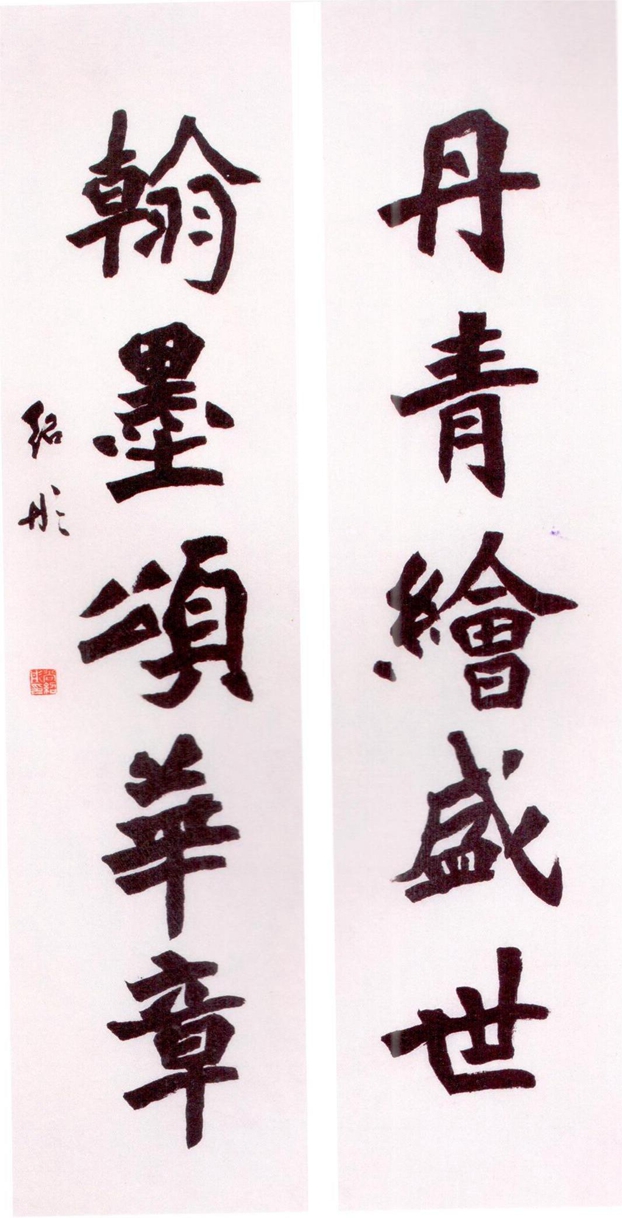 丹青繪盛世
翰墨頌華章
绍彤